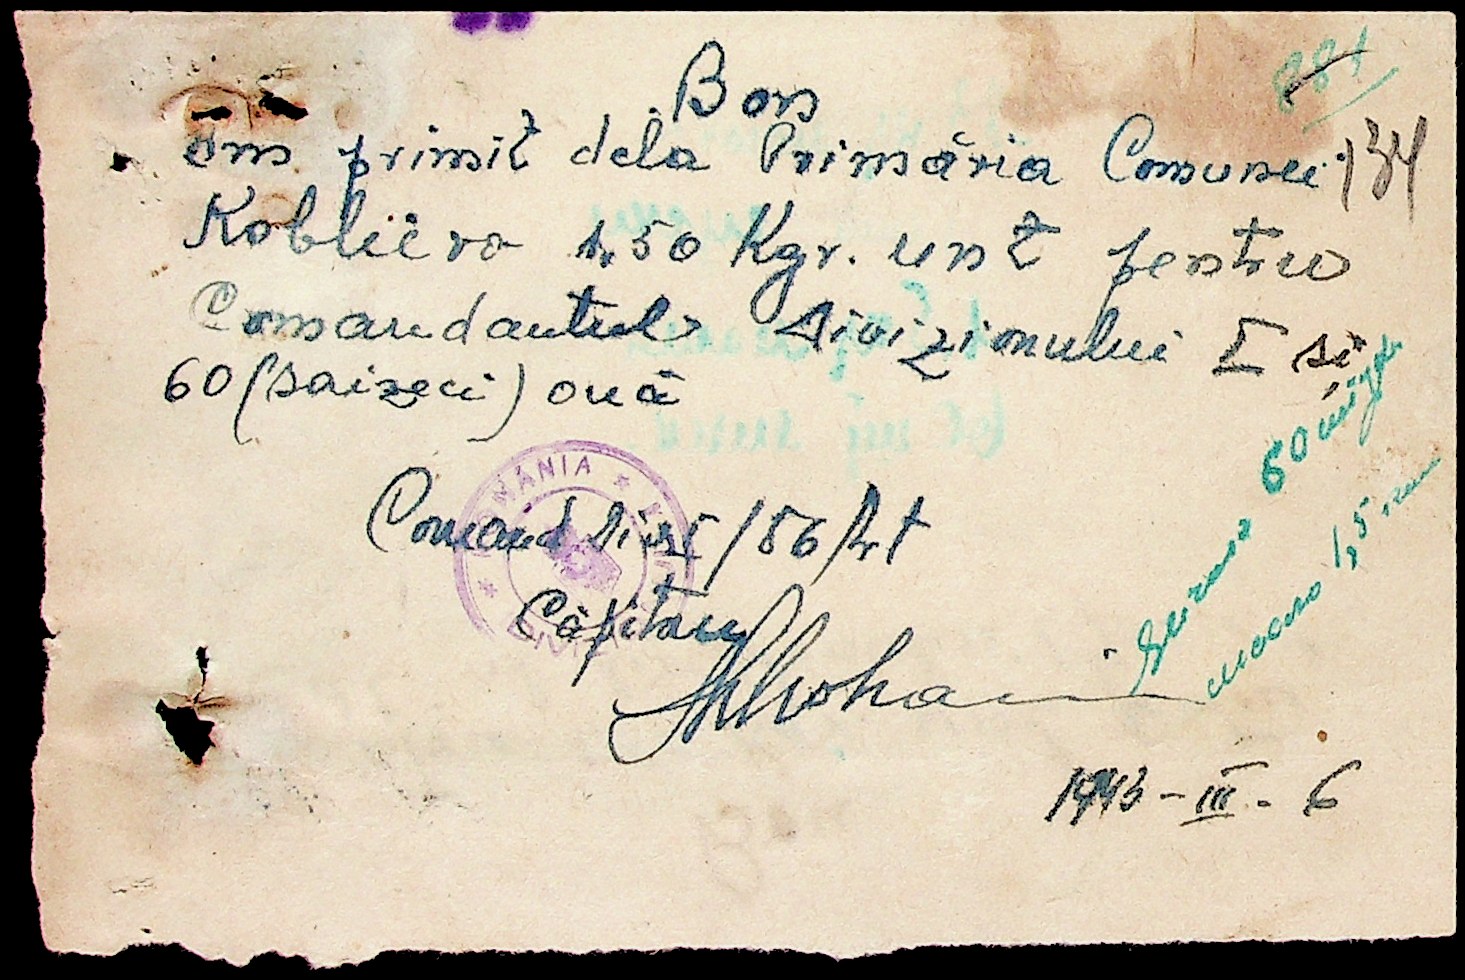 Bon
881
Am primit dela Primăria Comunei
134
Koblievo 1,50 Kgr. unt pentru
Comandantul Divizionului I și
60 (saizeci) ouă
ROMÂNIA
Comand Div I/56/Art
Căpitan
60 яйца
масло 1,5
1943-III-6